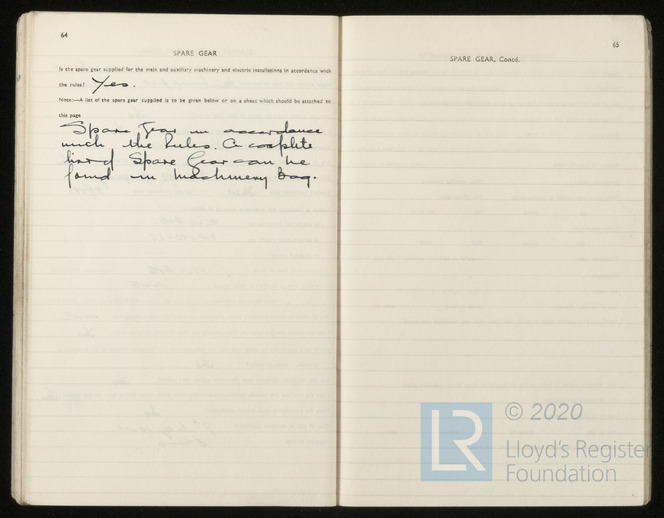 64
SPARE GEAR
Is the spare gear supplied for the main and auxiliary machinery and electric installations in accordance with
the rules? Yes.
Note:—A list of the spare gear supplied is to be given below or on a sheet which should be attached to
this page
Spare Gear in accordance
with the Rules. A complete
list of Spare Gear can be
found in Machinery Bag.
65
SPARE GEAR, Contd.
LR
© 2020
Lloyd's Register
Foundation